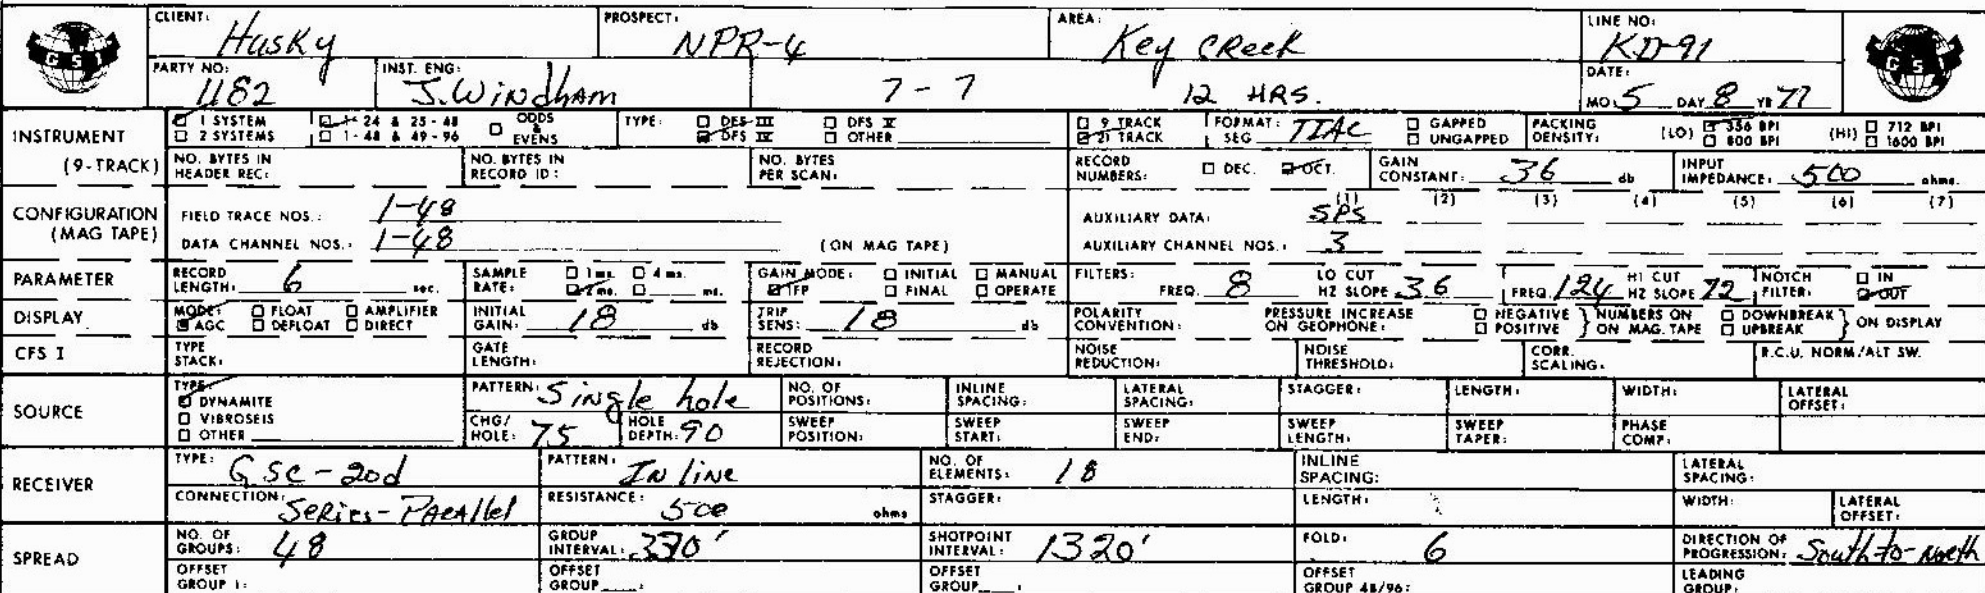 CLIENT: Husky PROSPECT: NPR-4 AREA: Key Creek LINE NO: KD-91
GSI GSI
PARTY NO: 1182 INST. ENG: J. Windham 7-7 12 HRS. DATE: MO. 5 DAY 8 YR 77
INSTRUMENT ☑ 1 SYSTEM ☑ 1-24 & 25-48 ☐ ODDS & EVENS TYPE: ☐ DFS III ☐ DFS V ☐ 9 TRACK FORMAT: SEG TIAC ☐ GAPPED PACKING DENSITY: (LO) ☑ 356 BPI (HI) ☐ 712 BPI
☐ 2 SYSTEMS ☐ 1-48 & 49-96 ☑ DFS IV ☐ OTHER ☑ 21 TRACK ☐ UNGAPPED ☐ 800 BPI ☐ 1600 BPI
(9-TRACK) NO. BYTES IN HEADER REC: NO. BYTES IN RECORD ID: NO. BYTES PER SCAN: RECORD NUMBERS: ☐ DEC. ☑ OCT. GAIN CONSTANT: 36 db INPUT IMPEDANCE: 500 ohms.
CONFIGURATION (MAG TAPE) FIELD TRACE NOS.: 1-48 AUXILIARY DATA: (1) SPS (2) (3) (4) (5) (6) (7)
DATA CHANNEL NOS.: 1-48 (ON MAG TAPE) AUXILIARY CHANNEL NOS.: 3
PARAMETER RECORD LENGTH: 6 sec. SAMPLE RATE: ☐ 1 ms. ☐ 4 ms. ☑ 2 ms. ☐ ms. GAIN MODE: ☐ INITIAL ☐ MANUAL ☑ IFP ☐ FINAL ☐ OPERATE FILTERS: FREQ. 8 LO CUT HZ SLOPE 36 FREQ. 124 HI CUT HZ SLOPE 72 NOTCH FILTER: ☐ IN ☑ OUT
DISPLAY MODE: ☐ FLOAT ☐ AMPLIFIER ☑ AGC ☐ DEFLOAT ☐ DIRECT INITIAL GAIN: 18 db TRIP SENS: 18 db POLARITY CONVENTION: PRESSURE INCREASE ON GEOPHONE: ☐ NEGATIVE ☐ POSITIVE } NUMBERS ON MAG. TAPE ☐ DOWNBREAK ☐ UPBREAK } ON DISPLAY
CFS I TYPE STACK: GATE LENGTH: RECORD REJECTION: NOISE REDUCTION: NOISE THRESHOLD: CORR. SCALING: R.C.U. NORM/ALT SW.
SOURCE TYPE: ☑ DYNAMITE PATTERN: Single hole NO. OF POSITIONS: INLINE SPACING: LATERAL SPACING: STAGGER: LENGTH: WIDTH: LATERAL OFFSET:
☐ VIBROSEIS ☐ OTHER CHG/HOLE: 75 HOLE DEPTH: 90 SWEEP POSITION: SWEEP START: SWEEP END: SWEEP LENGTH: SWEEP TAPER: PHASE COMP:
RECEIVER TYPE: GSC-20d PATTERN: In line NO. OF ELEMENTS: 18 INLINE SPACING: LATERAL SPACING:
CONNECTION: Series-Parallel RESISTANCE: 500 ohms STAGGER: LENGTH: WIDTH: LATERAL OFFSET:
SPREAD NO. OF GROUPS: 48 GROUP INTERVAL: 330' SHOTPOINT INTERVAL: 1320' FOLD: 6 DIRECTION OF PROGRESSION: South-to-North
OFFSET GROUP 1: OFFSET GROUP : OFFSET GROUP : OFFSET GROUP 48/96: LEADING GROUP: